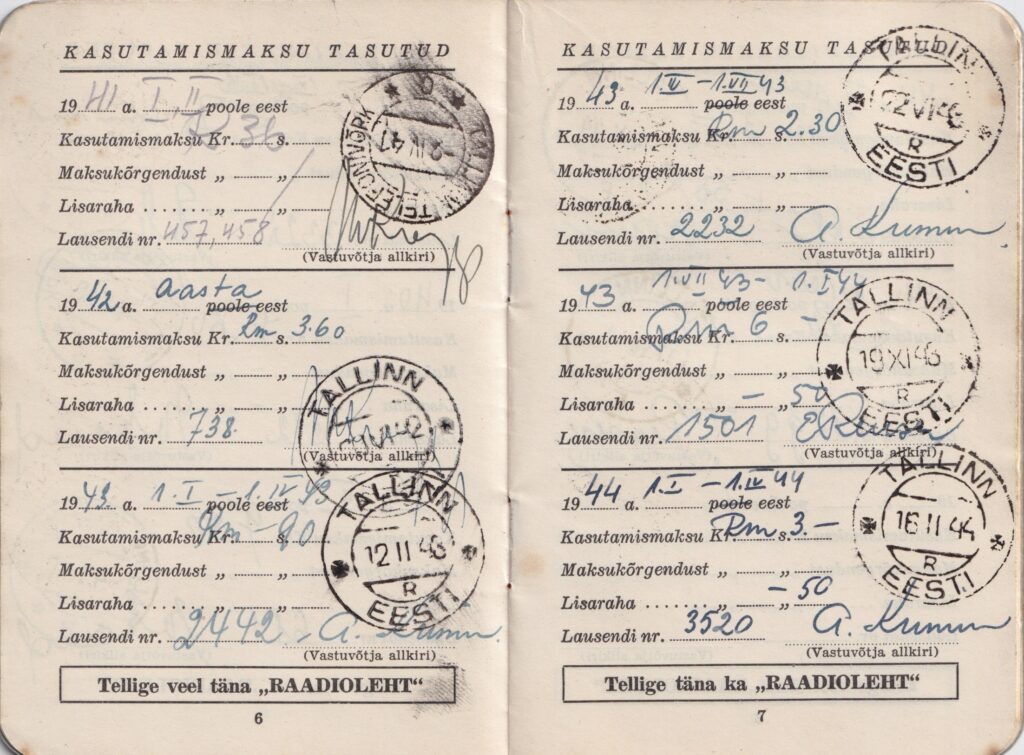 KASUTAMISMAKSU TASUTUD
1941 a. I, II poole eest
Kasutamismaksu Kr. 36 s.
Maksukõrgendust „ „
Lisaraha „ „
Lausendi nr. 457, 458
(Vastuvõtja allkiri)
TALLINNA TELEFONIVÕRK
1942 a. aasta poole eest
Kasutamismaksu Kr. Rm s. 3.60
Maksukõrgendust „ „
Lisaraha „ „
Lausendi nr. 738
(Vastuvõtja allkiri)
TALLINN
1943. a. 1.I – 1.IV 43 poole eest
Kasutamismaksu Kr. Rm – s. 90
Maksukõrgendust „ „
Lisaraha „ „
Lausendi nr. 2442 – A. Kumm
(Vastuvõtja allkiri)
TALLINN
12 II 43
R
EESTI
Tellige veel täna „RAADIOLEHT"
6
KASUTAMISMAKSU TASUTUD
1943 a. 1.IV – 1.VII 43 poole eest
Kasutamismaksu Kr. Rm s. 2.30
Maksukõrgendust „ „
Lisaraha „ „
Lausendi nr. 2232 A. Kumm
(Vastuvõtja allkiri)
TALLINN
22 VI 43
R
EESTI
1943 a. 1.VII 43 – 1.I 44 poole eest
Kasutamismaksu Kr. Rm 6 s. –
Maksukõrgendust „ „
Lisaraha „ – „ 50
Lausendi nr. 1501
(Vastuvõtja allkiri)
TALLINN
19 XI 43
R
EESTI
1944 a. 1.I – 1.IV 44 poole eest
Kasutamismaksu Kr. Rm s. 3.–
Maksukõrgendust „ „
Lisaraha „ „ – 50
Lausendi nr. 3520 A. Kumm
(Vastuvõtja allkiri)
TALLINN
16 II 44
R
EESTI
Tellige täna ka „RAADIOLEHT"
7